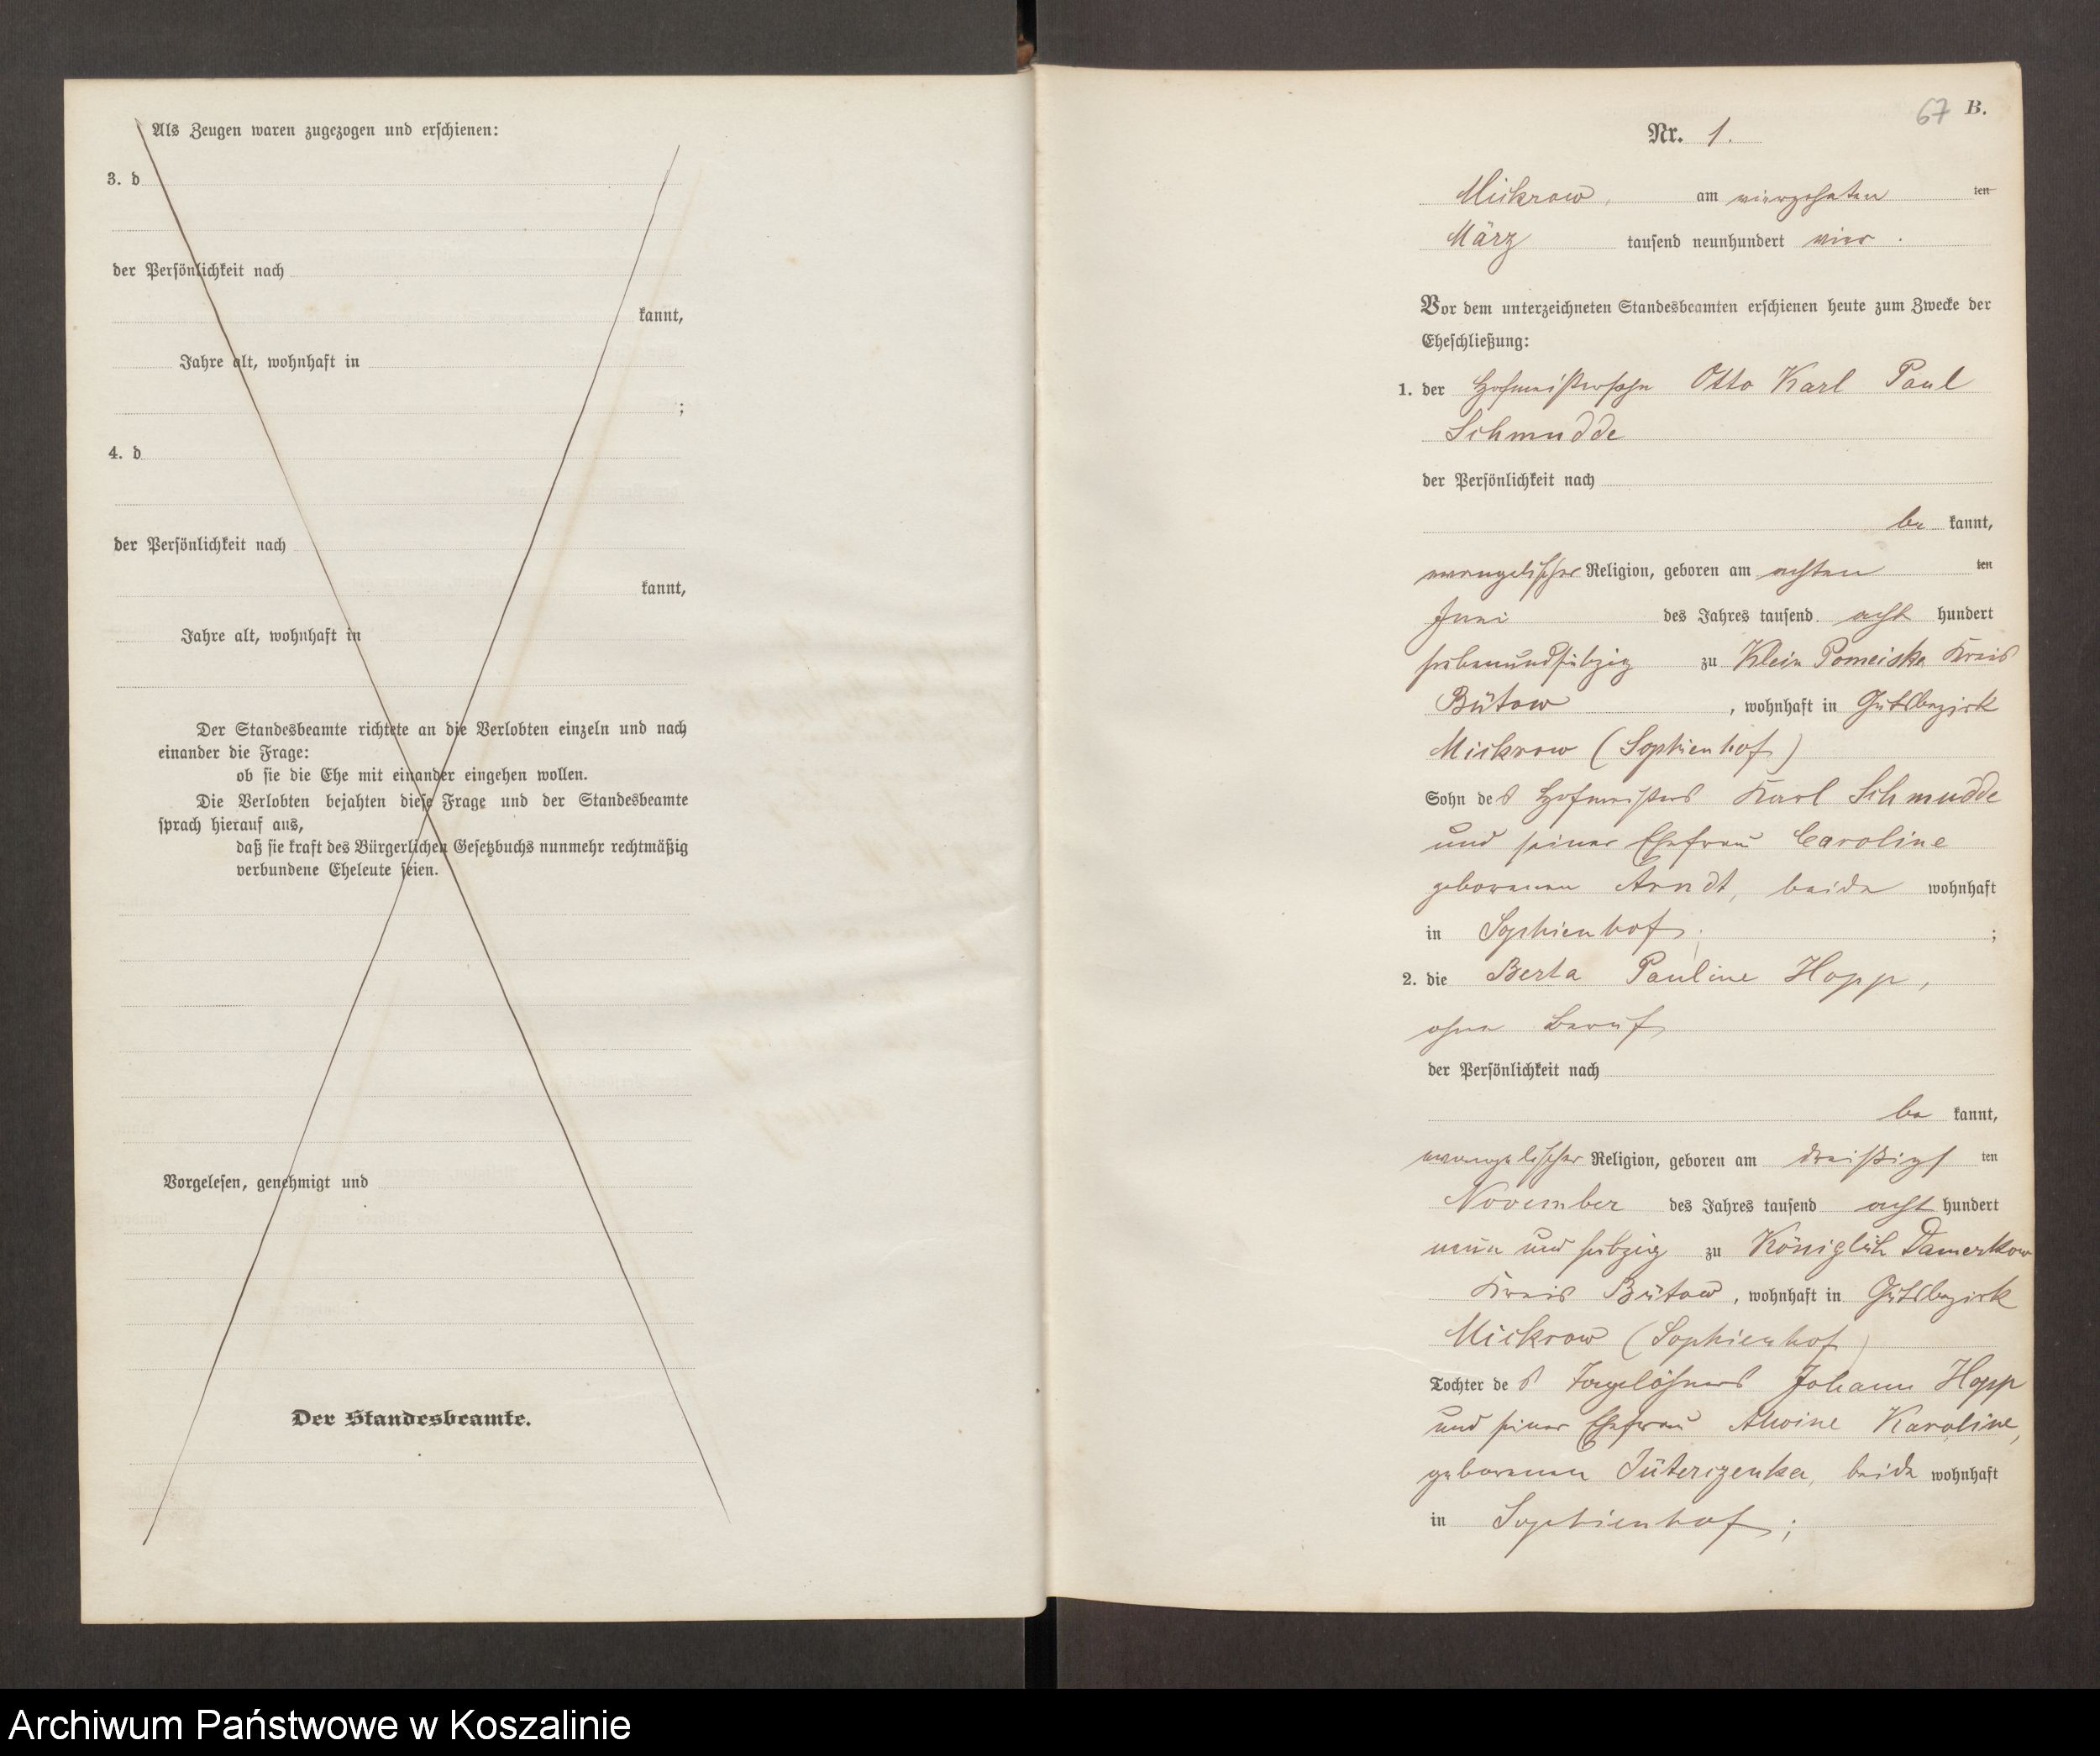 Als Zeugen waren zugezogen und erschienen:
3. d
der Persönlichkeit nach
kannt,
Jahre alt, wohnhaft in
;
4. d
der Persönlichkeit nach
kannt,
Jahre alt, wohnhaft in
Der Standesbeamte richtete an die Verlobten einzeln und nach
einander die Frage:
ob sie die Ehe mit einander eingehen wollen.
Die Verlobten bejahten diese Frage und der Standesbeamte
sprach hierauf aus,
daß sie kraft des Bürgerlichen Gesetzbuchs nunmehr rechtmäßig
verbundene Eheleute seien.
Vorgelesen, genehmigt und
Der Standesbeamte.
67 B.
Nr. 1.
Mickrow, am vierzehnten ten
März tausend neunhundert vier.
Vor dem unterzeichneten Standesbeamten erschienen heute zum Zwecke der
Eheschließung:
1. der Hofmeistersohn Otto Karl Paul
Schmudde
der Persönlichkeit nach
be kannt,
evangelischer Religion, geboren am achten ten
Juni des Jahres tausend acht hundert
siebenundsiebzig zu Klein Pomeiske Kreis
Bütow, wohnhaft in Gutsbezirk
Mickrow (Sophienhof)
Sohn des Hofmeisters Karl Schmudde
und seiner Ehefrau Caroline
geborenen Arndt, beide wohnhaft
in Sophienhof. ;
2. die Berta Pauline Hopp,
ohne Beruf
der Persönlichkeit nach
be kannt,
evangelischer Religion, geboren am dreißigs ten
November des Jahres tausend acht hundert
neun und siebzig zu Königlich Damerkow
Kreis Bütow, wohnhaft in Gutsbezirk
Mickrow (Sophienhof)
Tochter des Tagelöhners Johann Hopp
und seiner Ehefrau Alwine Karoline,
geborenen beide wohnhaft
in Sophienhof;
Archiwum Państwowe w Koszalinie